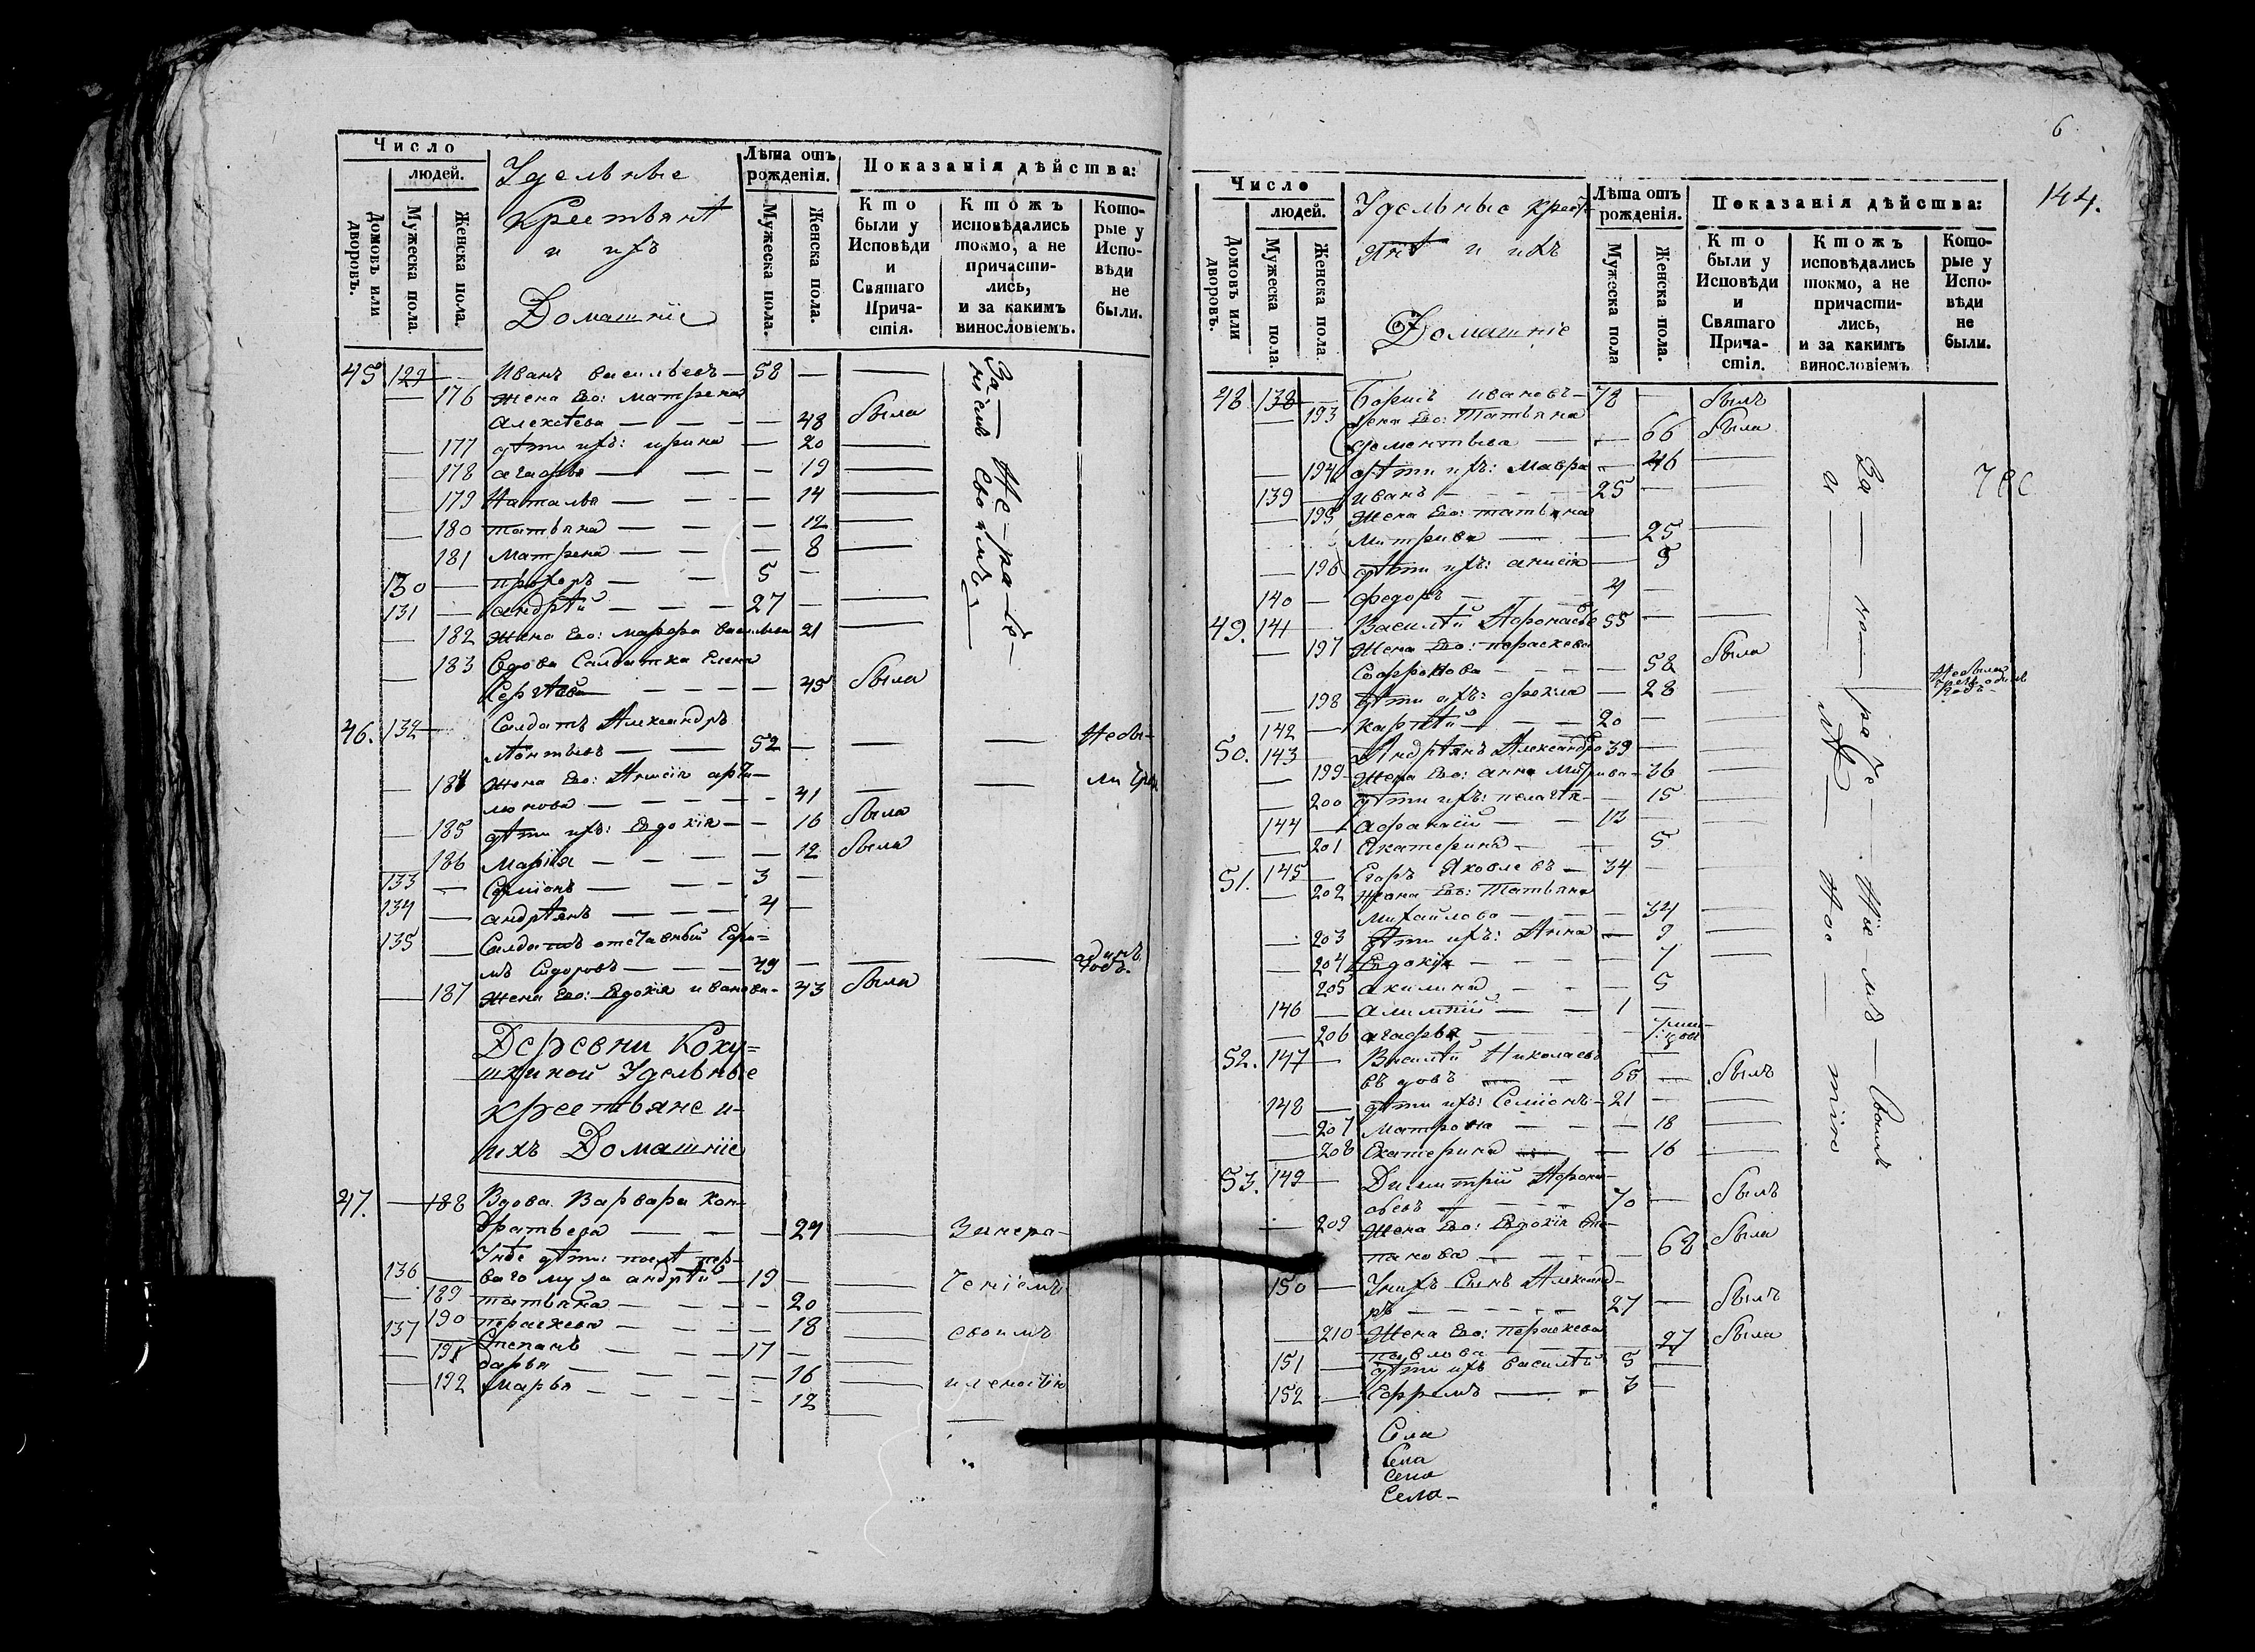 Число
людей.
Домовъ или дворовъ.
Мужеска пола.
Женска пола.
Удельные
Крестьянѣ
и ихъ
Домашніе
Лѣта отъ рожденія.
Мужеска пола.
Женска пола.
Показанія дѣйства:
Кто были у Исповѣди и Святаго Причастія.
Ктожъ исповѣдались токмо, а не причастились, и за какимъ винословіемъ.
Которые у Исповѣди не были.
45 129 — Иванъ васильевъ — 58 —
— 176 жена Его: матрена
алексѣева — — — 48 была
— 177 дѣти ихъ: ирина — 20 —
— 178 агафья — — — 19 —
— 179 Наталья — — — 14 —
— 180 татьяна — — — 12 —
— 181 матрена — — — 8 —
130 — прохоръ — — 5 —
131 — андрѣй — — — 27 — —
— 182 жена Его: марфа васильева 21 —
— 183 вдова Салдатка Елена
Сергѣева — — — — 45 была
46. 132 — Салдатъ Александръ
леонтьевъ — — 52 — — — Небы-
— 184 жена Его: Анисія
— — — — 41 — — ли
— 185 дѣти ихъ: Евдокія — — 16 была
— 186 Марія — — — — 12 была
133 — Семіонъ — — — 3 —
134 — андрѣянъ — — — 4 —
135 — Салдатъ отставный Ефи=
мъ Сидоровъ — — — 49 — — — адинъ годъ.
— 187 жена Его: Евдокія иванова — 43 была
Деревни Коку=
шкиной Удельные
крестьяне и-
ихъ Домашніе
47. — 188 Вдова Варвара Кон-
дратьева — — — 24 — Занера-
Унее дѣти: послѣ пер-
136 — ваго мужа андрѣй — 19 — —
— 189 татьяна — — — — 20 — ченіемъ
— 190 параскева — — — — 18 — своимъ
137 — Степанъ — — — 17 — —
— 191 дарья — — — — 16 —
— 192 Марья — — — — 12 —
6
144.
Число
людей.
Домовъ или дворовъ.
Мужеска пола.
Женска пола.
Удельные крест-
янѣ и ихъ
Домашніе
Лѣта отъ рожденія.
Мужеска пола
Женска пола.
Показанія дѣйства:
Кто были у Исповѣди и Святаго Причастія.
Ктожъ исповѣдались токмо, а не причастились, и за какимъ винословіемъ
Которые у Исповѣди не были.
48 138 — Борисъ ивановъ — 78 — былъ
— 193 жена Его: Татьяна
дементьева — — 66 была
— 194 дѣти ихъ: Мавра — 46 —
139 — иванъ — — — 25 —
— 195 жена Его: татьяна
митрива — — 25 —
— 196 дѣти ихъ: анисія — 9
140 — федоръ — — 4 —
49. 141 — Василѣй Афонасье 55 — —
— 197 жена Его: параскева
Софронова — — — 58 была
— 198 дѣти ихъ: фокла — 28
142 — карпѣй — — — 20 —
50. 143 — Андрѣянъ Александро 39 — —
— 199 жена Его: анна Митрива — 36 —
— 200 дѣти ихъ: пелагѣя — 15 —
144 — афанасій — — 13 — —
— 201 Екатерина — — 5
51. 145 — Егоръ Яковлевъ — 34 — —
— 202 жена Его: Татьяна
Михайлова — — — 34 —
— 203 дѣти ихъ: Анна — 9 —
— 204 Евдокія — — — — 7 —
205 акилина — — — 5
146 — алимпій — — 1 —
— 206 агафья — — —
52. 147 — Василѣй Николаевъ
въдовъ — — 65 — былъ
148 — дѣти ихъ: Семіонъ — 21 — —
— 207 матрона — — — 18 —
— 208 Екатерина — — 16 —
53. 149 — Димитрій Афона-
сьевъ — — — 70 — былъ
— 209 жена Его: Евдокія Сте-
панова — — — — 62 была
150 — Унихъ Сынъ Александ-
ръ — — — — — 27 — былъ
— 210 жена Его: параскева
павлова — — — 27 была
151 — дѣти ихъ василѣй 5 —
152 — Ефремъ — — 3 —
Села
Села
Села
Села —